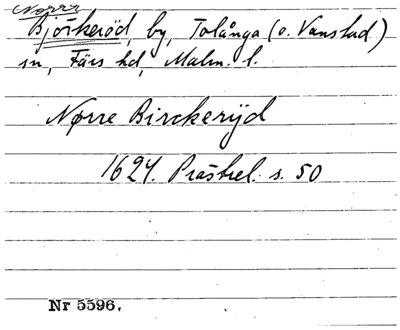 Norr
Björkeröd, by, Tolånga (o. Vanstad)
sn, Färs hd, Malm. l.
Nørre Birckerijd
1624. Prästrel. s. 50
Nr 5596.